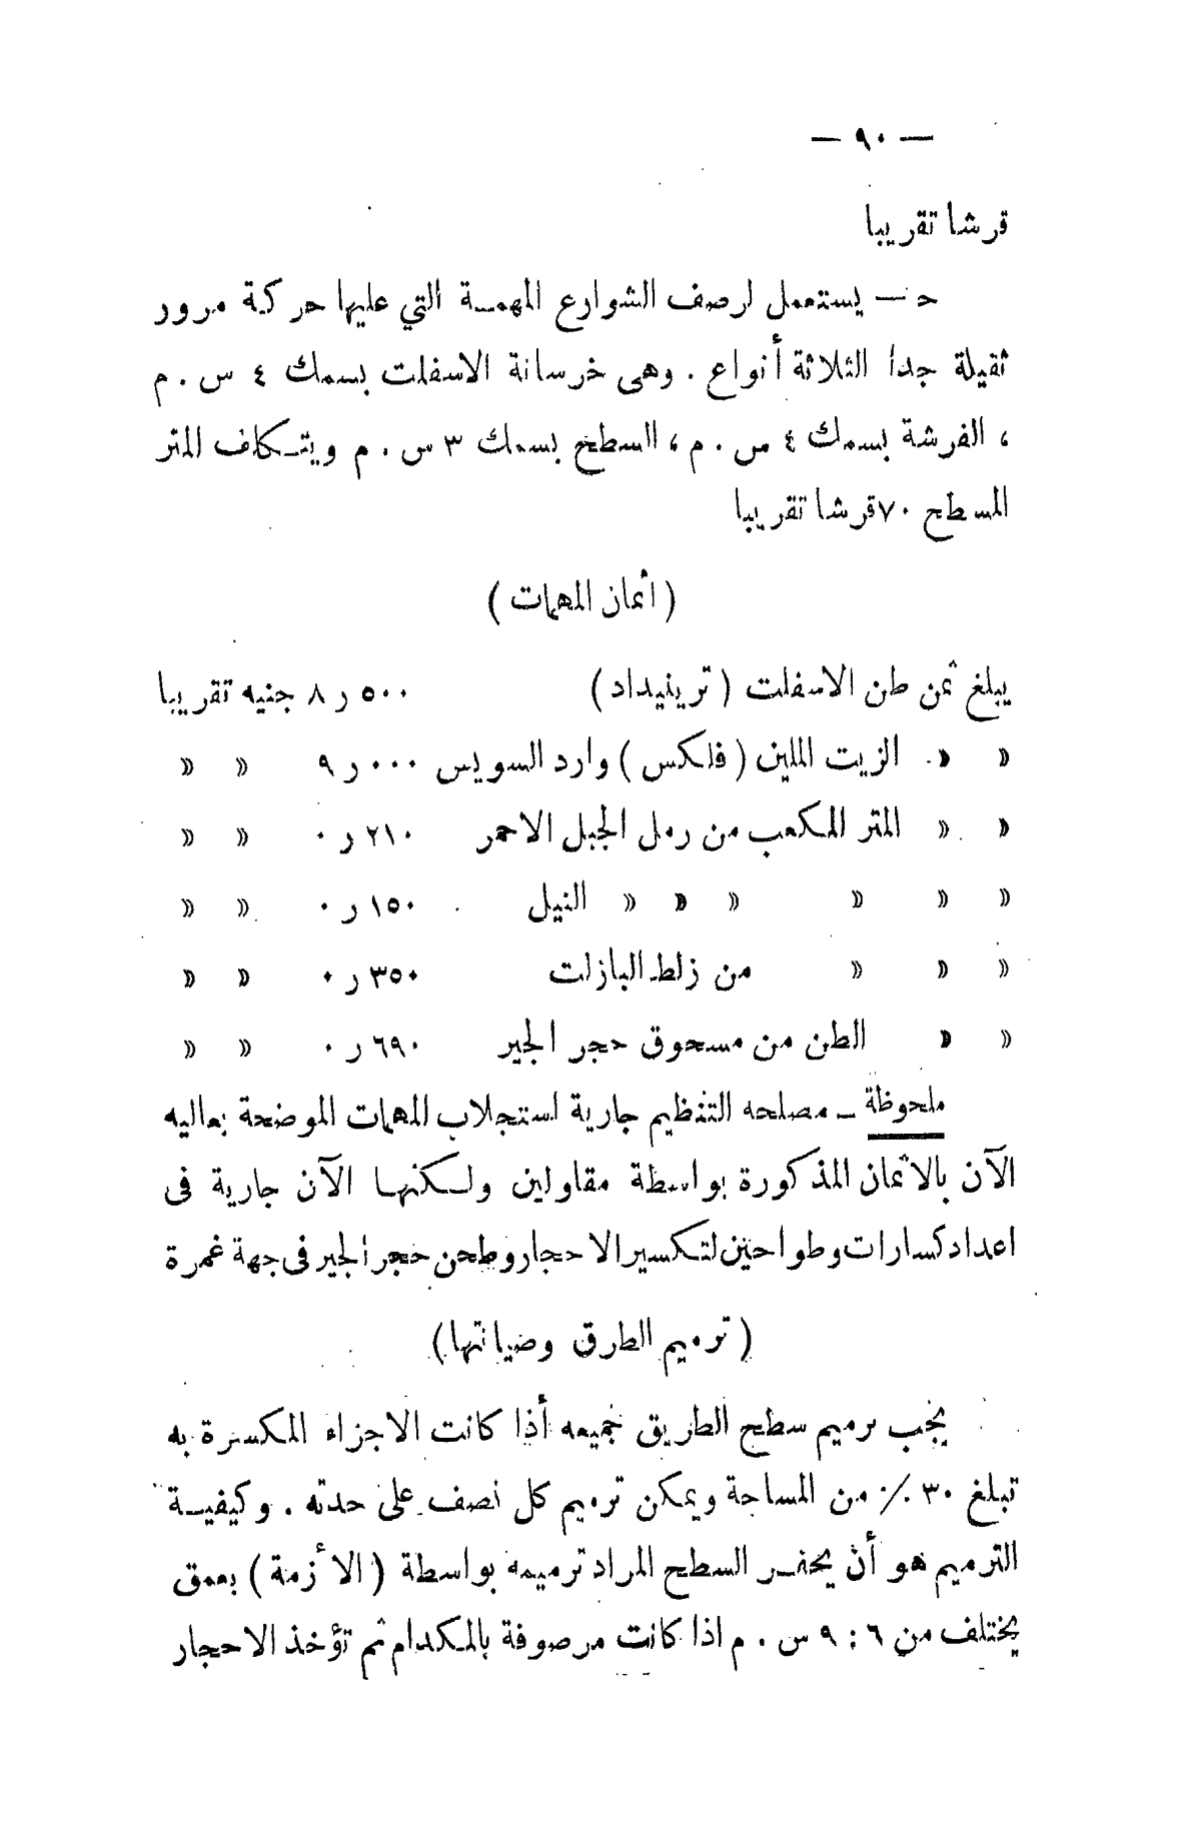 — ٩٠ —
قرشا تقريبا
حـ — يستعمل لرصف الشوارع المهمة التي عليها حركة مرور
ثقيلة جدا الثلاثة أنواع . وهى خرسانة الاسفلت بسمك ٤ س . م
، الفرشة بسمك ٤ س . م ، السطح بسمك ٣ س . م ويتكاف المتر
المسطح ٧٠ قرشا تقريبا
( اثمان المهمات )
يبلغ ثمن طن الاسفلت ( ترينيداد ) ٥٠٠ ر ٨ جنيه تقريبا
« « الزيت الملين ( فلكس ) وارد السويس ٠٠٠ ر ٩ « «
« « المتر المكعب من رمل الجبل الاحمر ٢١٠ ر ٠ « «
« « « « « « النيل ١٥٠ ر ٠ « «
« « « من زلط البازلت ٣٥٠ ر ٠ « «
« « الطن من مسحوق حجر الجير ٦٩٠ ر ٠ « «
ملحوظة — مصلحه التنظيم جارية استجلاب المهمات الموضحة بعاليه
الآن بالاثمان المذكورة بواسطة مقاولين ولكنها الآن جارية فى
اعداد كسارات وطواحين لتكسير الاحجار وطحن حجر الجير فى جهة غمرة
( ترميم الطرق وصيانتها )
يجب ترميم سطح الطريق جميعه أذا كانت الاجزاء المكسرة به
تبلغ ٣٠ ٪ من المساحة ويمكن ترميم كل نصف على حدته . وكيفية
الترميم هو أن يحفر السطح المراد ترميمه بواسطة ( الأزمة ) بعمق
يختلف من ٦ : ٩ س . م اذا كانت مرصوفة بالمكدام ثم تؤخذ الاحجار